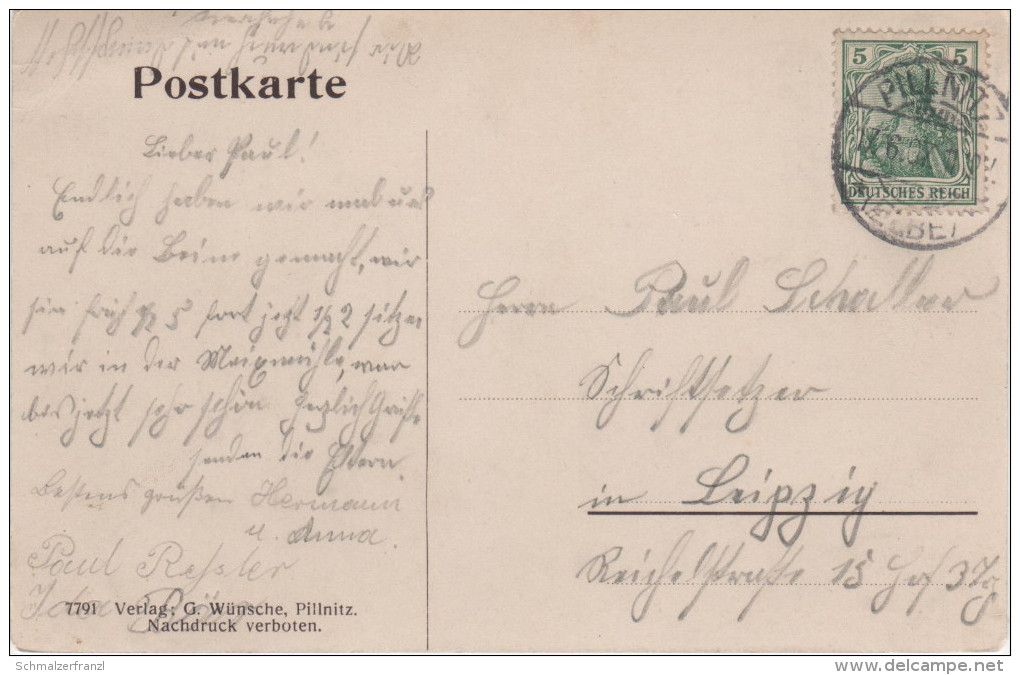 Postkarte
5 5
DEUTSCHES REICH
PILLNITZ
Lieber Paul!
Endlich haben wir uns
auf die Beine gemacht, wir
sin früh 1/2 5 fort jetzt 1/2 2 sitzen
wir in der Meixmühle, war
bis jetzt sehr schön herzlich Grüße
senden die Eltern
Bestens grüßen Hermann
u. Anna.
Paul Ressler
Ida
Herrn Paul Schaller
Schriftsetzer
in Leipzig
Reichelstraße 15 Hof
7791 Verlag: G. Wünsche, Pillnitz.
Nachdruck verboten.
Schmalzerfranzl
www.delcampe.net